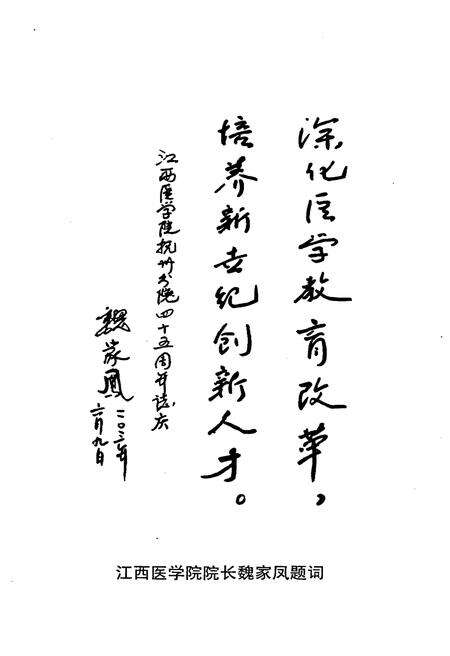 深化医学教育改革，
培养新世纪创新人才。
江西医学院抚州分院四十五周年誌庆
魏家鳳
六月九日
江西医学院院长魏家凤题词